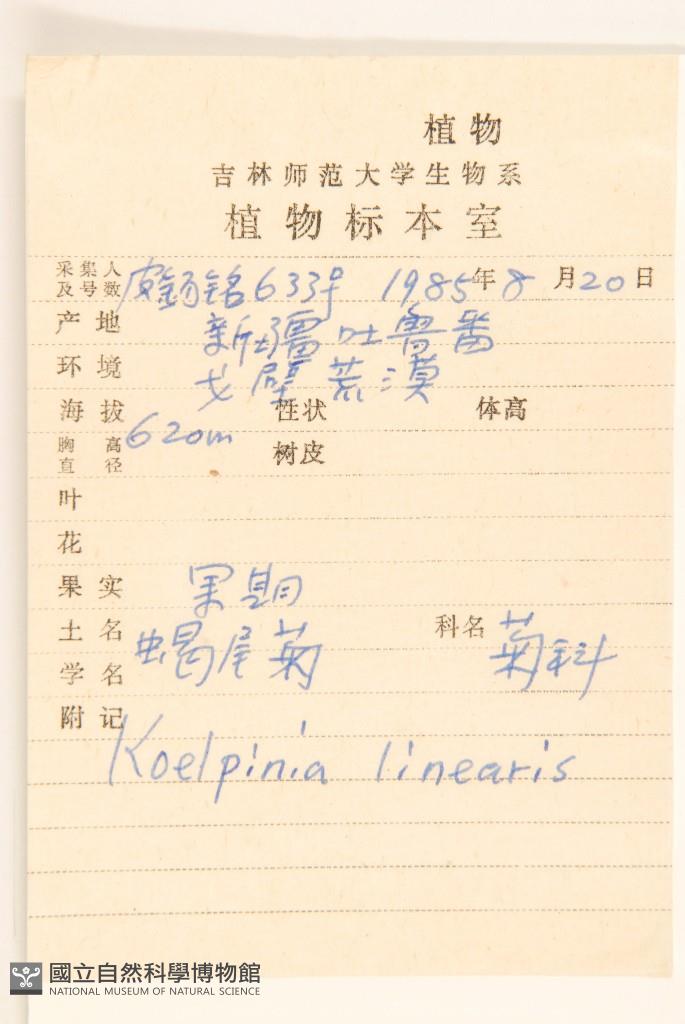 植物
吉林师范大学生物系
植物标本室
采集人及号数 铭633号 1985年8月20日
产地 新疆吐鲁番
环境 戈壁荒漠
海拔 620m 性状 体高
胸高直径 树皮
叶
花
果实 果期
土名 蝎尾菊 科名 菊科
学名
附记 Koelpinia linearis
國立自然科學博物館
NATIONAL MUSEUM OF NATURAL SCIENCE